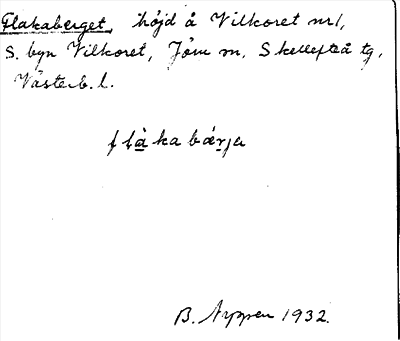 Flakaberget, höjd å Vilkoret nr 1,
S. byn Vilkoret, Jörn sn, Skellefteå tg,
Västerb. l.
flàkabǽrja
B. Nyppen 1932.